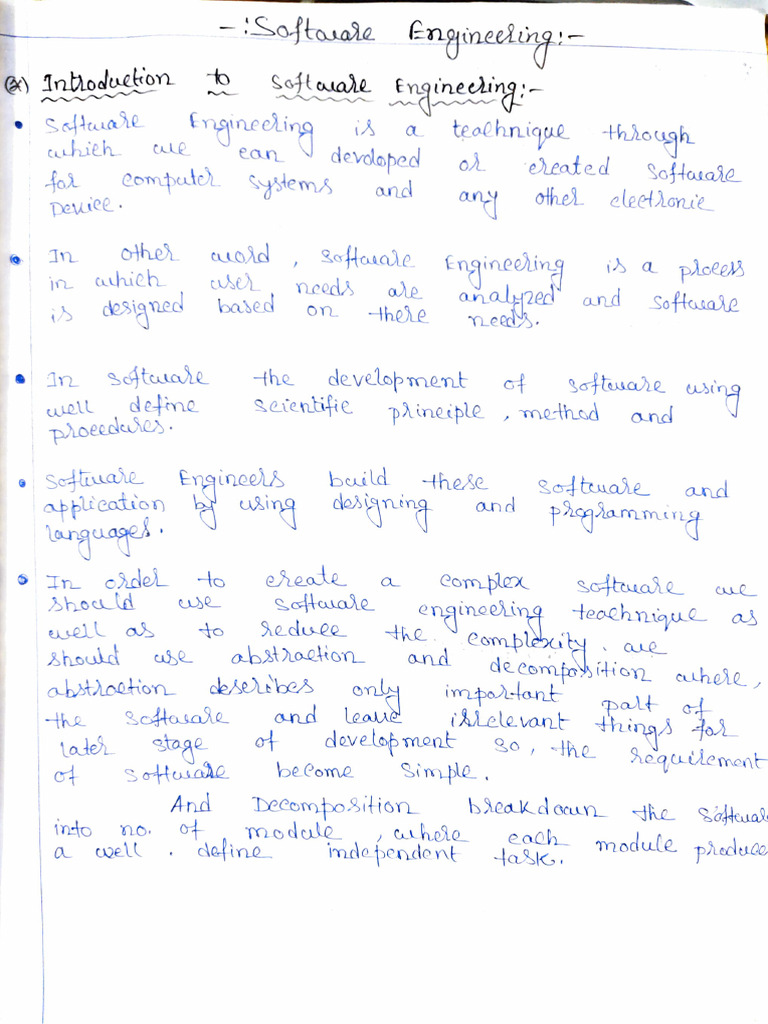 -: Software Engineering:-
(*) Introduction to Software Engineering:-
• Software Engineering is a teachnique through
which we can devoloped or created software
for computer systems and any other electronic
Device.
• In other word, Software Engineering is a process
in which user needs are analyzed and software
is designed based on there needs.
• In software the development of software using
well define scientific principle, method and
procedures.
• Software Engineers build these software and
application by using designing and programming
languages.
• In order to create a complex software we
should use software engineering teachnique as
well as to reduce the complexity. we
should use abstraction and decomposition where,
abstraction describes only important part of
the software and leave irrelevant things for
later stage of development so, the requirement
of software become simple.
And Decomposition breakdown the software
into no. of module, where each module produce
a well. define independent task.